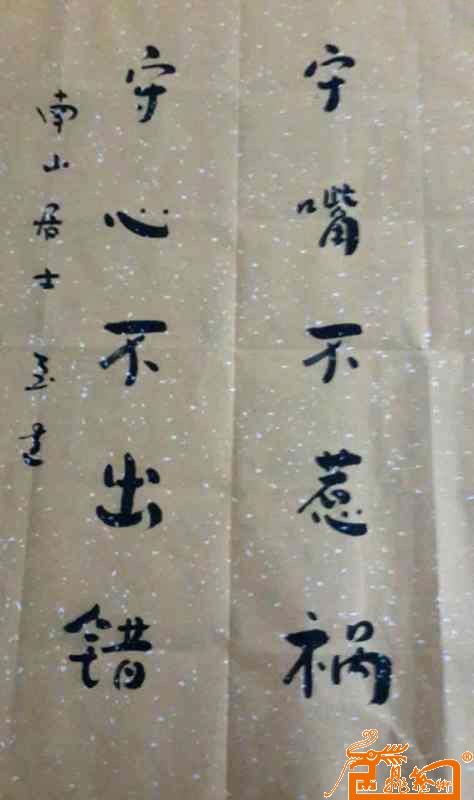 守嘴不惹祸
守心不出错
南山居士 书